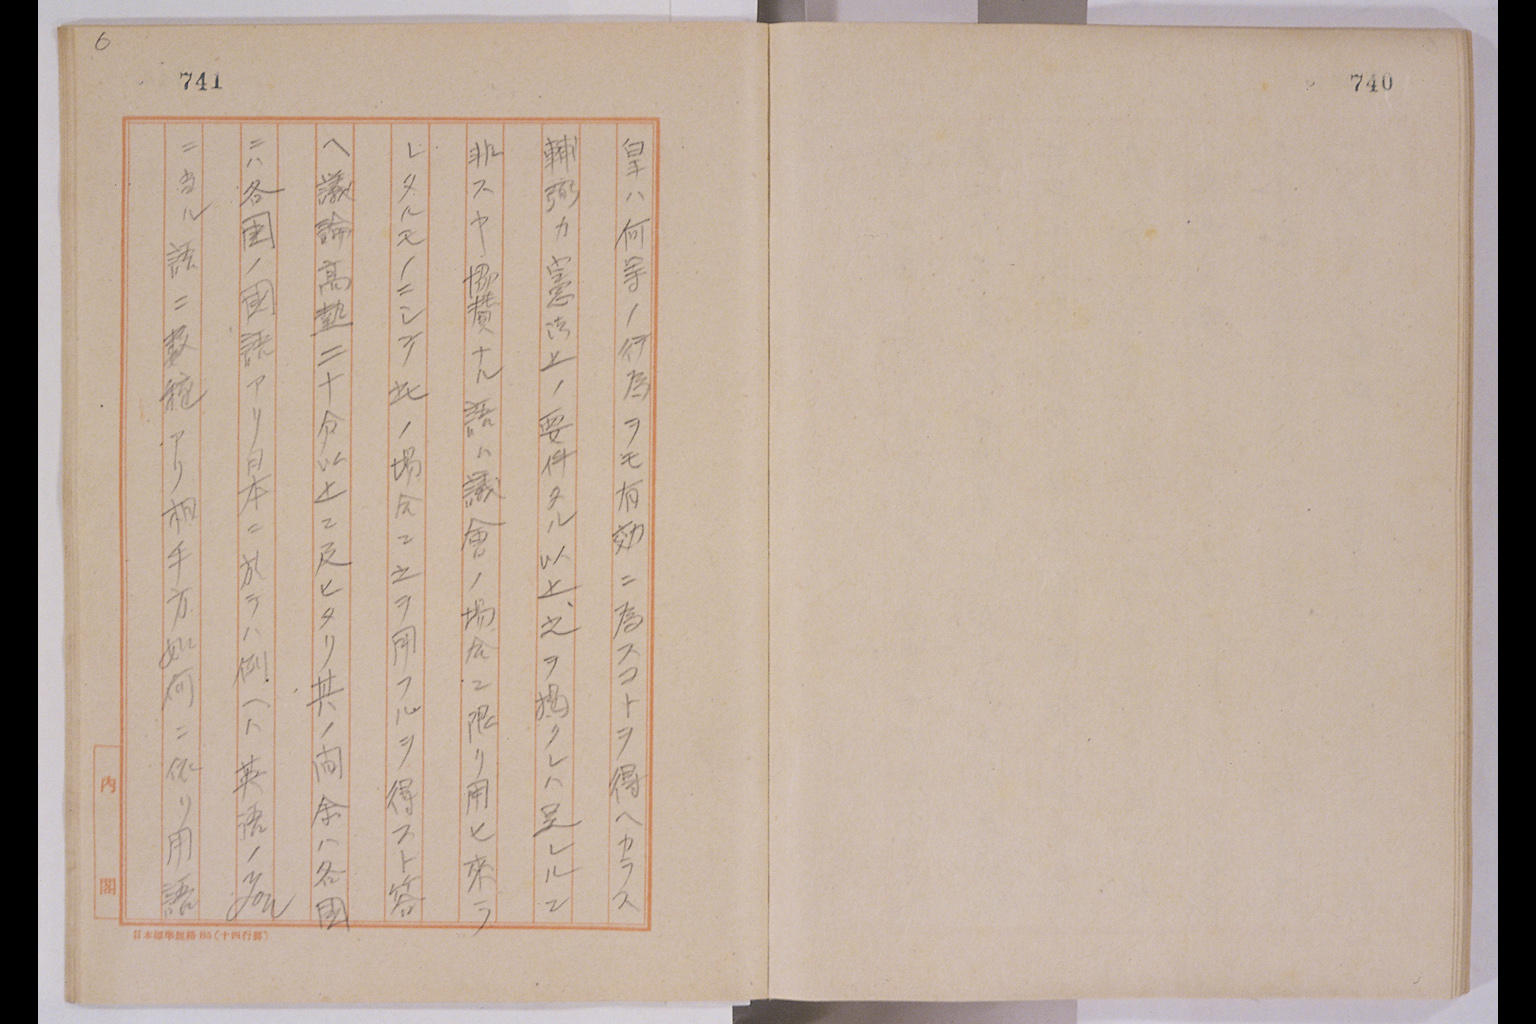 740
6
741
皇ハ何等ノ行為ヲモ有効ニ為スコトヲ得ヘカラス
輔弼カ憲法上ノ要件タル以上、之ヲ掲クレハ足レルニ
非スヤ協賛ナル語ハ議會ノ場合ニ限リ用ヒ来ラ
レタルモノニシテ此ノ場合ニ之ヲ用フルヲ得スト答
ヘ議論高熱二十分以上ニ及ヒタリ其ノ間余ハ各国
ニハ各国ノ國語アリ日本ニ於テハ例ヘハ英語ノyou
ニ当ル語ニ数種アリ相手方如何ニ依リ用語
内閣
日本標準規格B5(十四行罫)